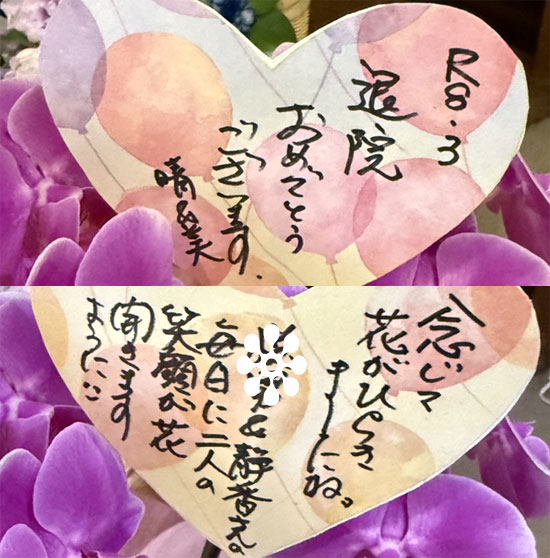 R8.3
退院
おめでとう
ございます.
念じて
花がひらき
ましたね。
&静香え。
毎日に二人の
笑顔が花
開きます
ように